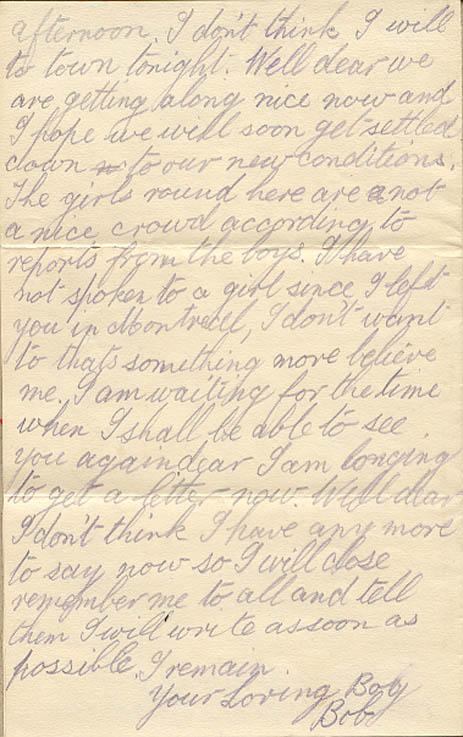 afternoon. I don't think I will
to town tonight. Well dear we
are getting along nice now and
I hope we will soon get settled
down to our new conditions.
The girls round here are not
a nice crowd according to
reports from the boys. I have
not spoken to a girl since I left
you in Montreal, I don't want
to thats something more believe
me. I am waiting for the time
when I shall be able to see
you again dear I am longing
to get a letter now. Well dear
I don't think I have any more
to say now so I will close
remember me to all and tell
them I will write as soon as
possible. I remain.
Your Loving Boy
Bob